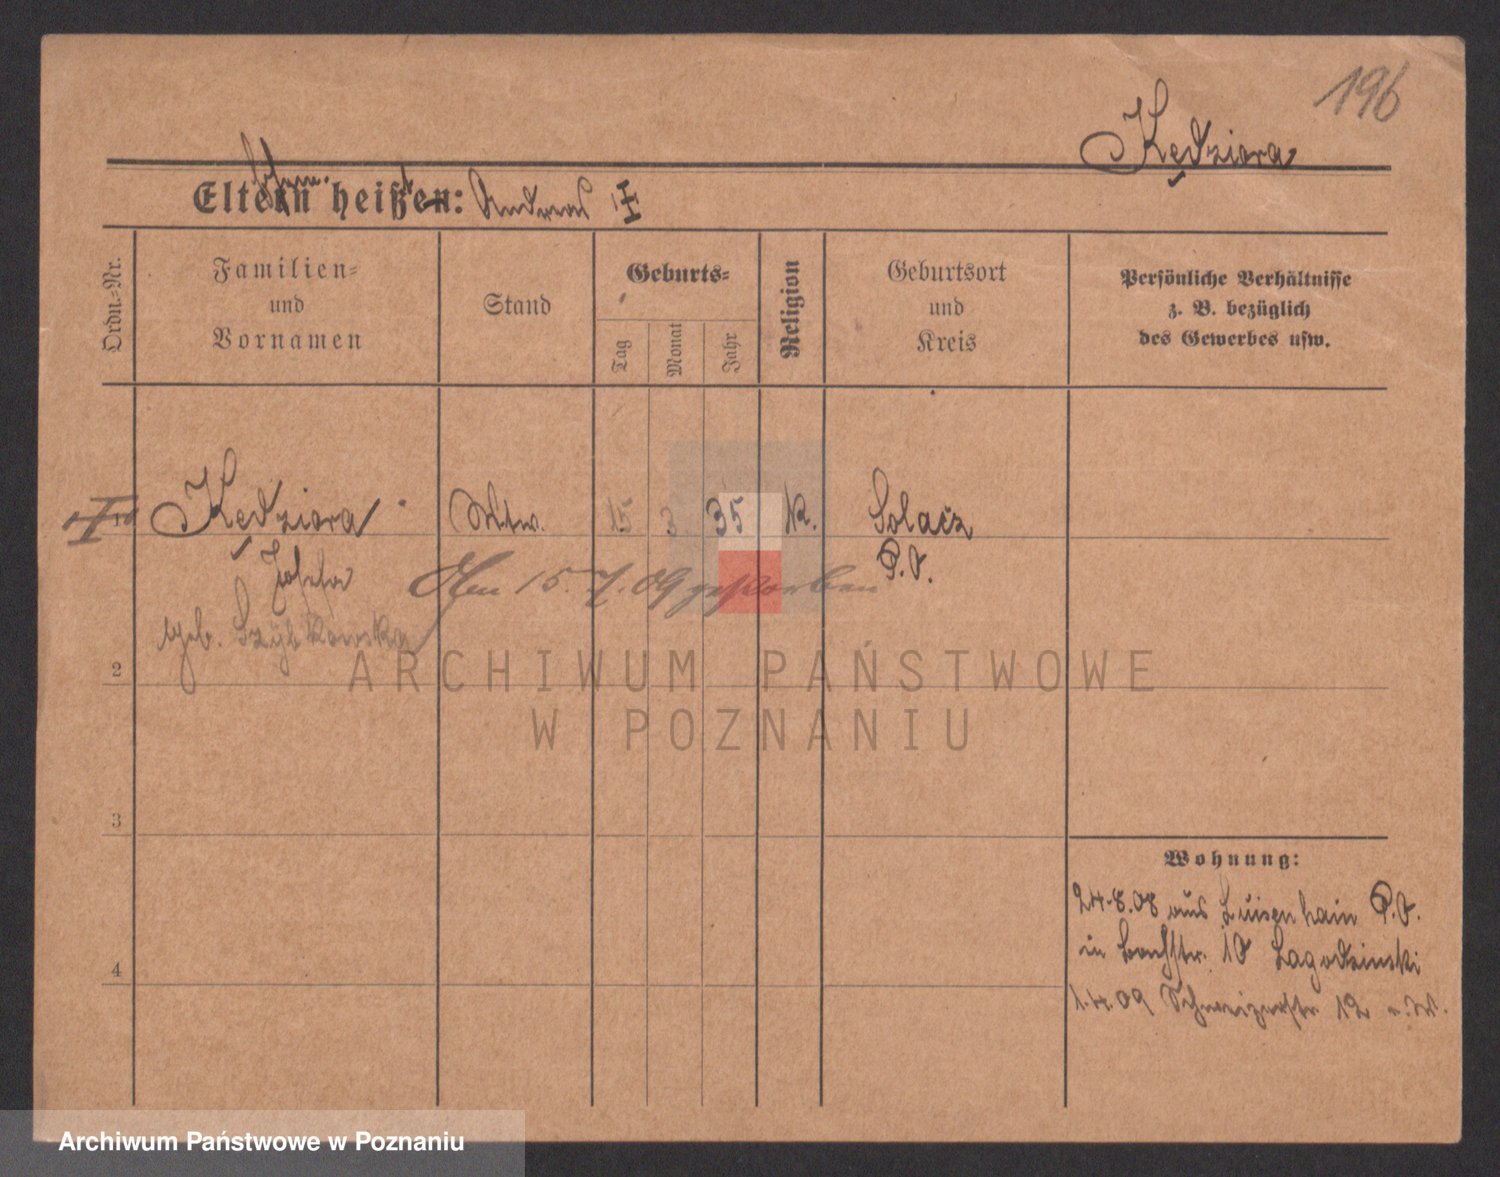 196
Kędziora
Eltern heißen: Andreas I
Ordn.=Nr.
Familien=
und
Vornamen
Stand
Geburts=
Tag
Monat
Jahr
Religion
Geburtsort
und
Kreis
Persönliche Verhältnisse
z. B. bezüglich
des Gewerbes usw.
Kędziora Wtw. 15 3 35 K. Solacz
Josefa P.O.
Am 15. 7. 09 gestorben
geb.
2
3
4
Wohnung:
24.8.08 aus Luisenhain P.O.
in Bachstr. 10 Lagodzinski
1.4.09 Schweizerstr 12
ARCHIWUM PAŃSTWOWE
W POZNANIU
Archiwum Państwowe w Poznaniu